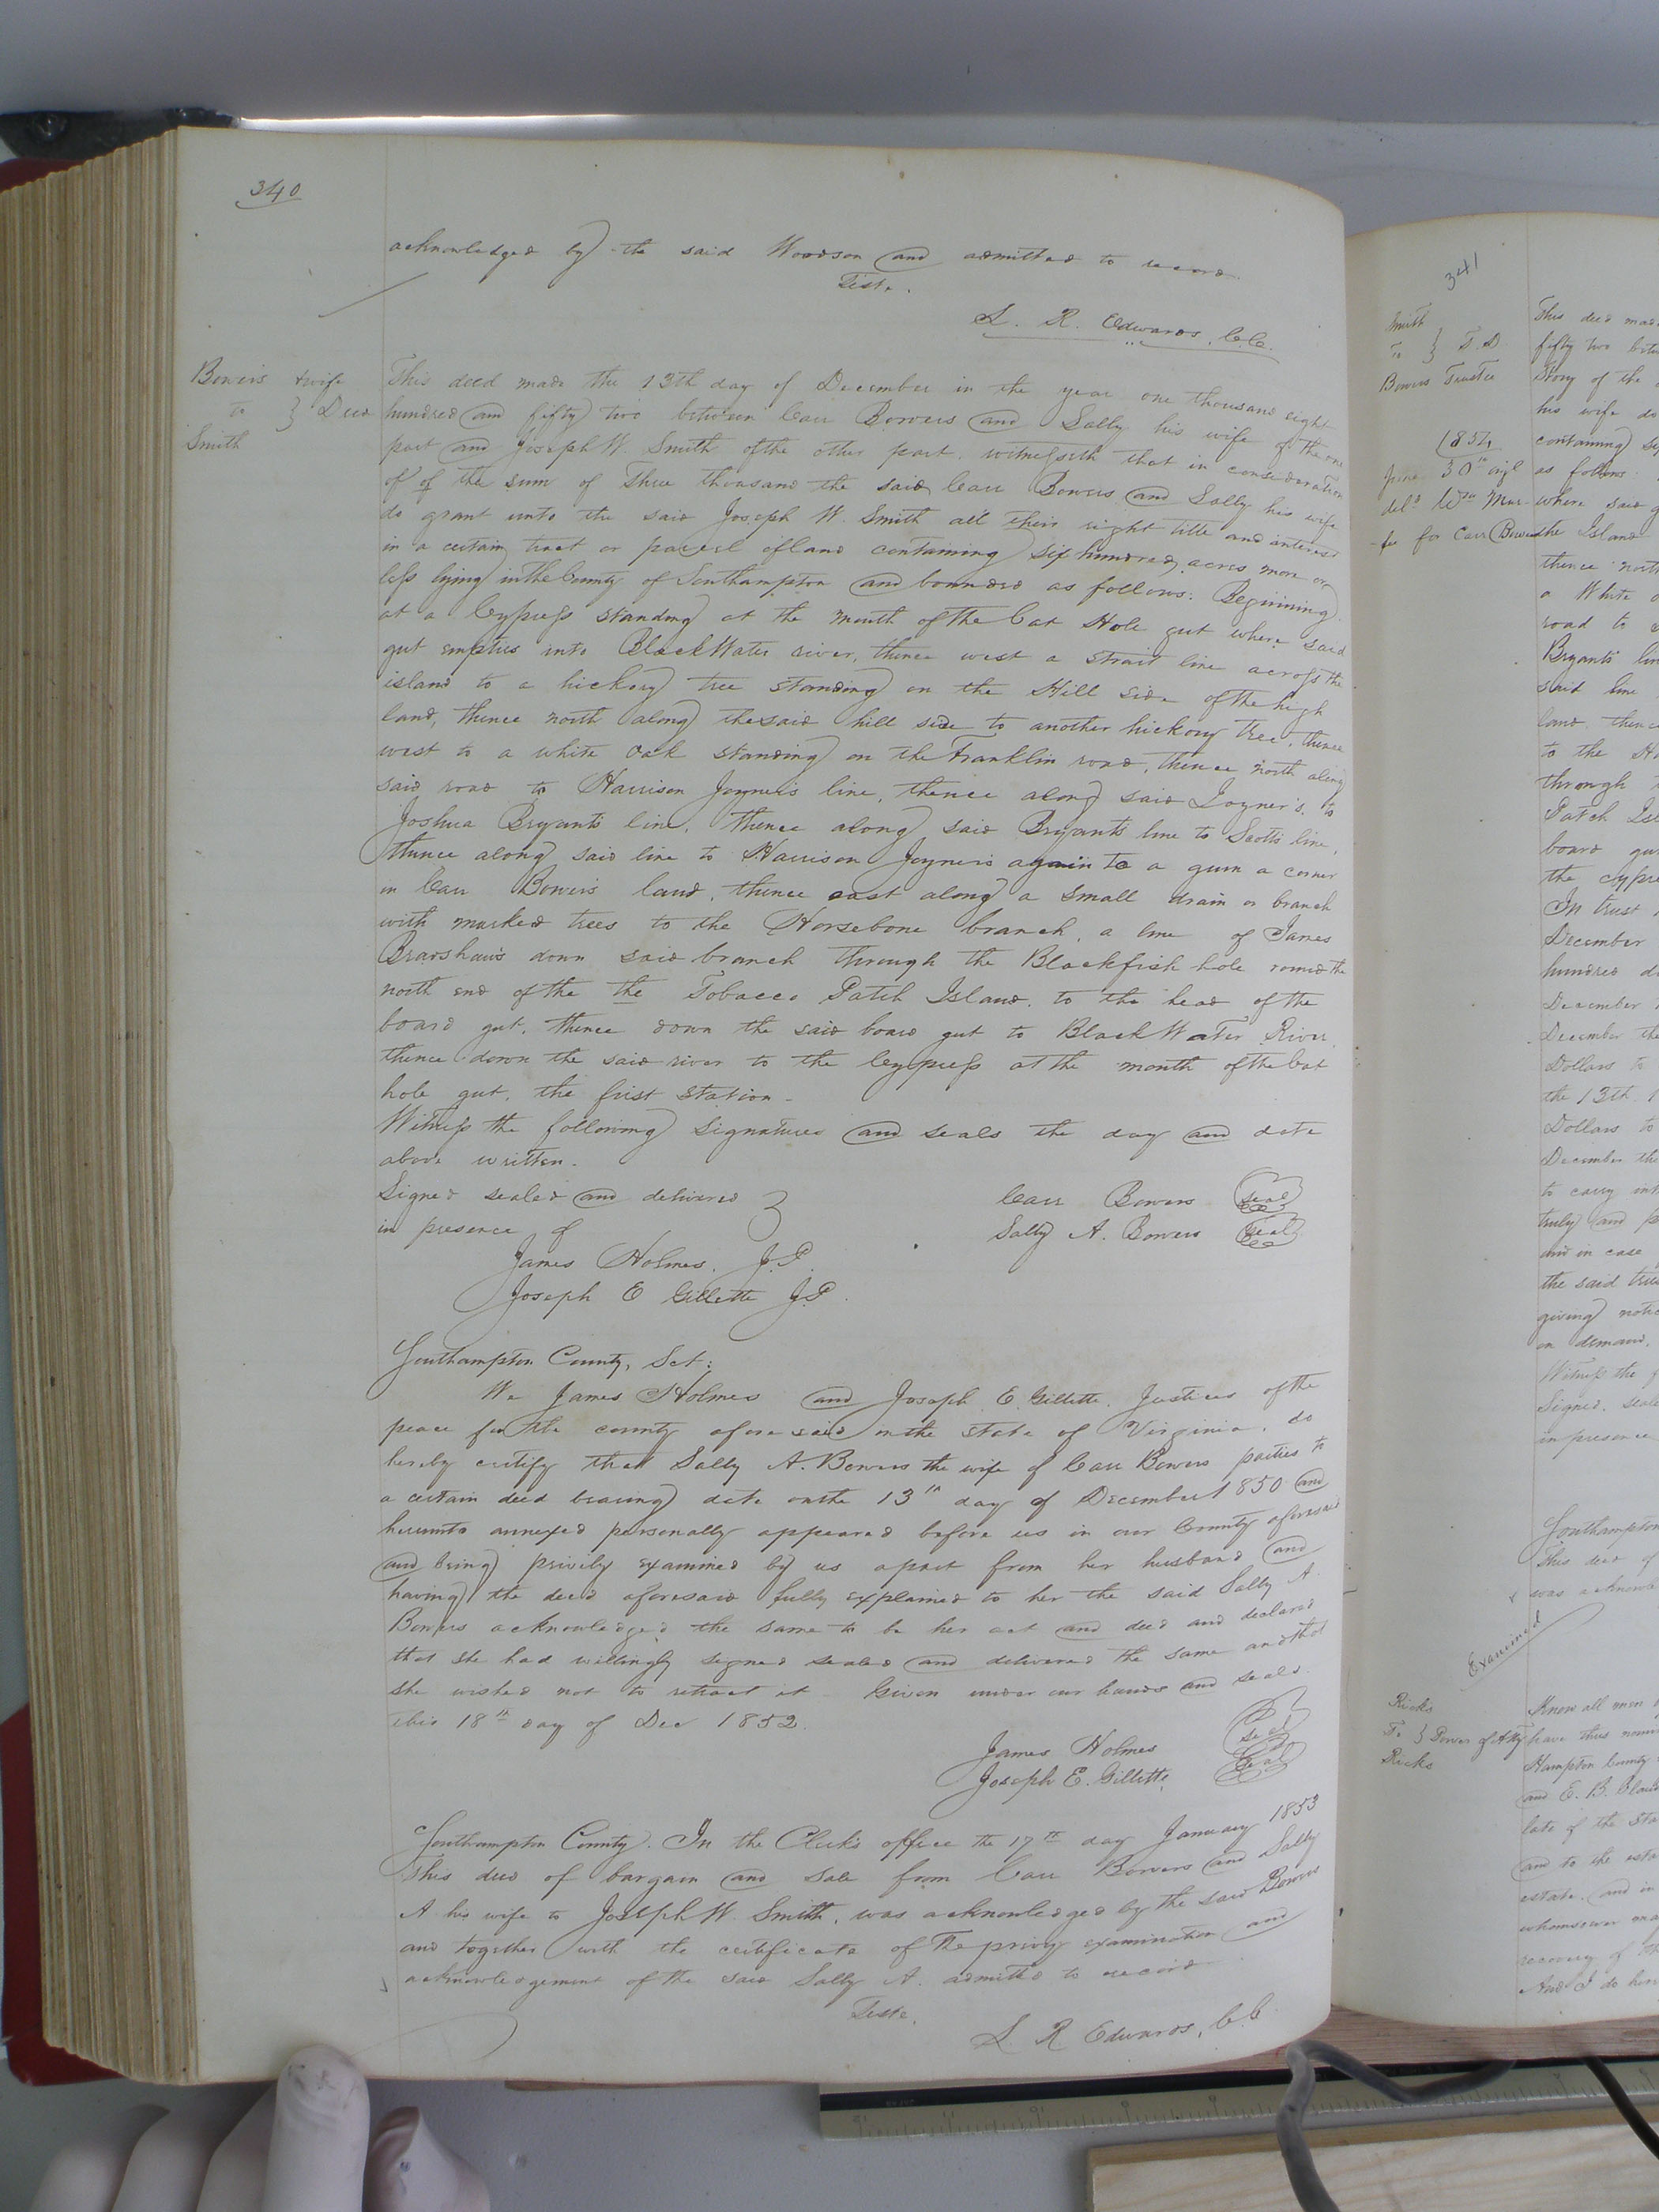 340
acknowledged by the said Woodson and admitted to record.
Teste.
L. R. Edwards, C.C.
Bowers & wife
to } Deed
Smith
This deed made the 13th day of December in the year one thousand eight
hundred and fifty two between Carr Bowers and Sally his wife of the one
part and Joseph W. Smith of the other part. witnesseth that in consideration
of of the sum of Three thousand the said Carr Bowers and Sally his wife
do grant unto the said Joseph W. Smith all their right title and interest
in a certain tract or parcel of land containing six hundred acres more or
less lying in the County of Southampton and bounded as follows: Beginning
at a Cypress standing at the mouth of the Cat Hole gut where said
gut empties into Black Water river, thence west a strait line across the
island to a hickory tree standing on the Hill side of the high
land, thence north along the said hill side to another hickory tree, thence
west to a white oak standing on the Franklin road, thence north along
said road to Harrison Joyner's line, thence along said Joyner's, to
Joshua Bryant's line, thence along said Bryant's line to Scott's line,
thence along said line to Harrison Joyner's again to a gum a corner
in Carr Bowers land, thence east along a small drain or branch
with marked trees to the Horsebone branch, a line of James
Bradshaw's down said branch through the Blackfish hole round the
north end of the the Tobacco Patch Island, to the head of the
board gut, thence down the said board gut to Black Water River,
thence down the said river to the Cypress at the mouth of the Cat
hole gut, the first station.
Witness the following signatures and seals the day and date
above written.
Signed sealed and delivered }
in presence of
Carr Bowers seal
Sally A. Bowers seal
James Holmes. J.P.
Joseph E Gillette J.P.
Southampton County, Sct:
We James Holmes and Joseph E. Gillette. Justices of the
peace for the county aforesaid in the State of Virginia, do
hereby certify that Sally A. Bowers the wife of Carr Bowers parties to
a certain deed bearing date on the 13th day of December 1850 and
hereunto annexed personally appeared before us in our County aforesaid
and being privily examined by us apart from her husband and
having the deed aforesaid fully explained to her the said Sally A.
Bowers acknowledged the same to be her act and deed and declared
that she had willingly signed sealed and delivered the same and that
she wished not to retract it. Given under our hands and seals
this 18th day of Dec 1852.
James Holmes seal
Joseph E. Gillette. Seal
Southampton County. In the Clerk's office the 17th day January 1853
This deed of bargain and sale from Carr Bowers and Sally
A his wife to Joseph W. Smith, was acknowledged by the said Bowers
and together with the certificate of the privy examination and
acknowledgement of the said Sally A. admitted to record
Teste.
L R Edwards, C.C
341
Smith
To } T.D.
Bowers Trustee
1854
June 30th
deld Wm
for Carr Bowers
This deed made
fifty two
Story of the
his wife do
containing
as follows.
where said
the Island
thence north
a White
road to
Bryants line
said line
land, thence
to the
through
Patch
board gut
the cypress
In trust
December
hundred
December
December the
Dollars to
the 13th
Dollars to
December the
to carry into
truly and
and in case
the said
giving notice
on demand.
Witness the
Signed. sealed
in presence
Southampton
This deed of
was
Examined
Ricks
To } Power of Atty
Ricks
Know all men
have this
Hampton County
and E. B.
late of the
and to the
estate. and in
whomsoever
recovery of
And I do